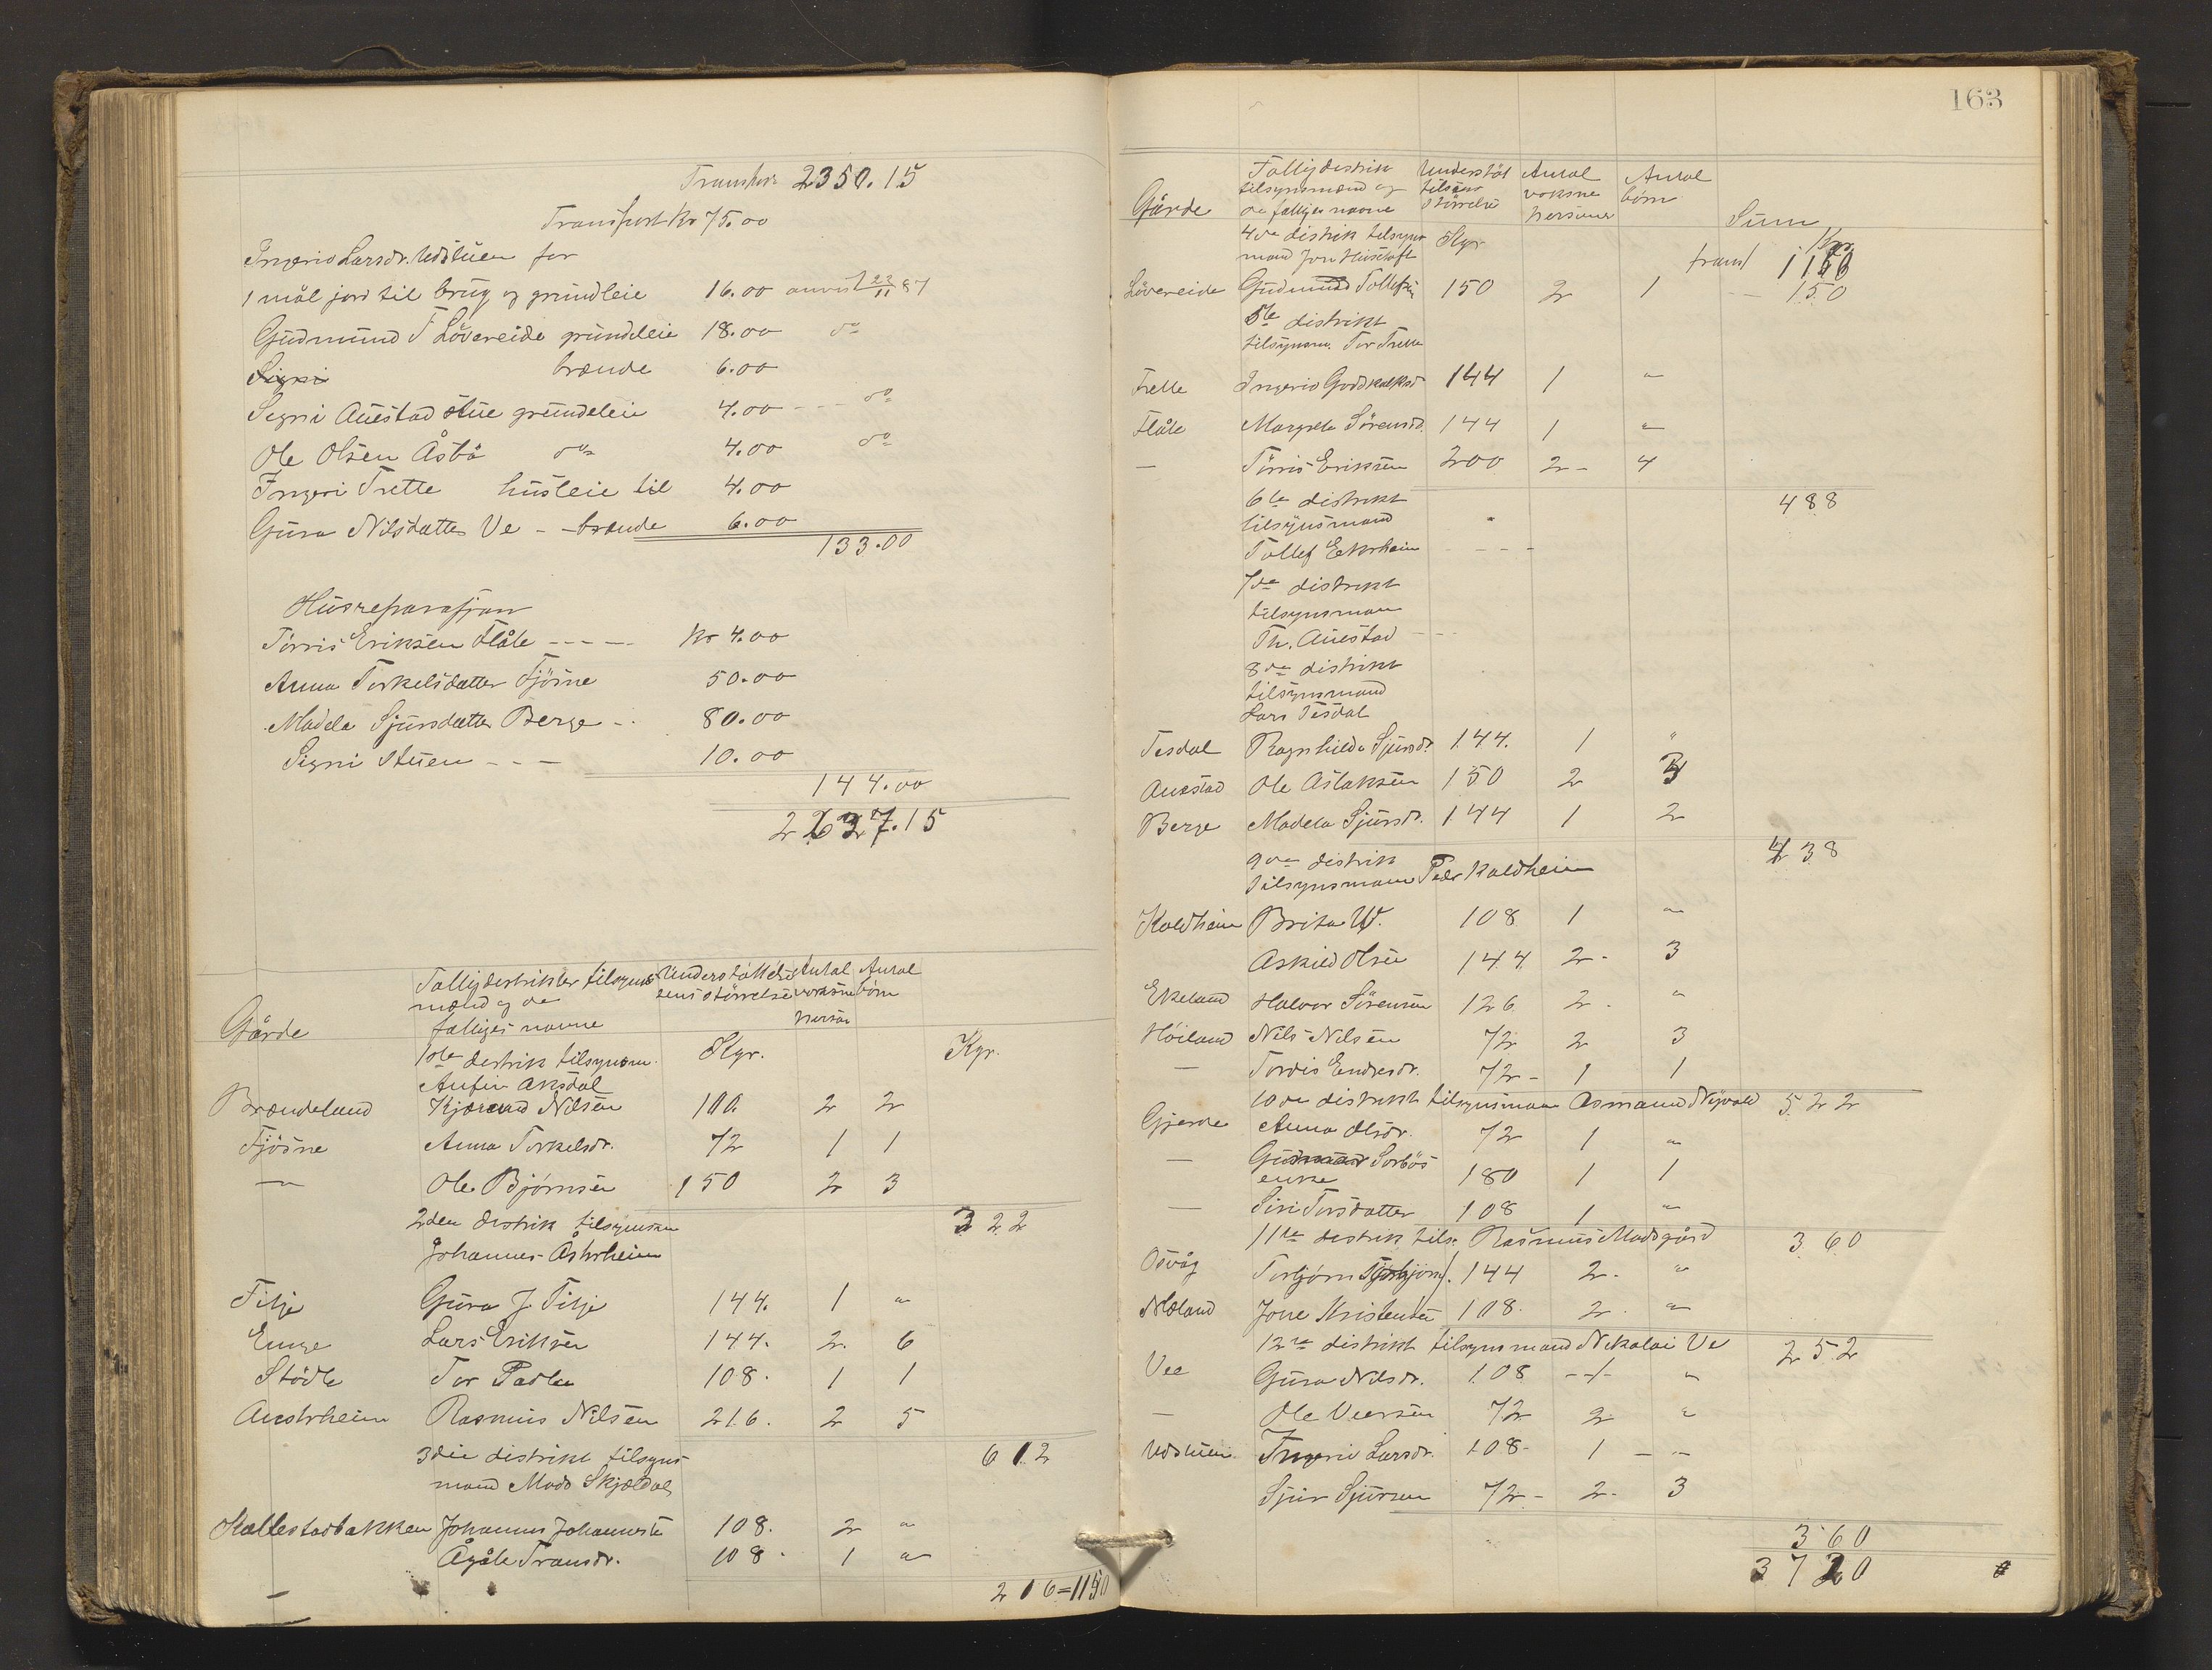 Transport 2350.15
Transport Kr 75.00
Ingerid Larsdr. Udstuen for
1 mål jord til brug og grundleie 16.00 anvist 22/11 87
Gudmund T Lövereide grundleie 18.00 do
Signi brænde 6.00
Signi Auestad stue grundeleie 4.00 - - - do
Ole Olsen Åsbö do 4.00 do
Ingeri Trette husleie til 4.00
Guro Nilsdatter Ve - - brænde 6.00
133.00
Husreparasjon
Törris Eriksen Flåte - - - - Kr 4.00
Anna Torkelsdatter Fjösne 50.00
Madela Sjursdatter Berge - . 80.00
Signi Stuen - - - 10.00
144.00
2627.15
Gårde
Fattigdistrikter tilsyns
mænd og de
fattiges navne
Understöttel
sens störrelse
Antal
voksne
person
Antal
börn
1ste distrik tilsynsm. Kgr. Kgr.
Anfin Aksdal
Brændeland Kjærand Nilsen 100 2 2
Fjösne Anna Torkelsdr. 72 1 1
— Ole Bjørnsen 150 2 3
2den distrik tilsynsman 322
Johannes Åstrheim
Tilje Guro J. Tilje 144. 1 "
Enge Lars Eriksen 144. 2. 6
Stödle Tor Padler 108. 1 1
Austrheim Rasmus Nilsen 216. 2 5
3die distrikt tilsyns 612
mand Mads Skjældal
Hallestadbakken Johannes Johannesen 108. 2 "
Ågåte Transdr. 108. 1 "
216=1150
163
Gårde
Fattigdistrik
tilsynsmænd og
de fattiges navne
Understöt
telsens
störrelse
Antal
voksne
personer
Antal
börn
Sum
4de distrik tilsyns Kgr. Kgr
mand Jon transp 1150
Lövereide Gudmund Tollefsen 150 2 1 - - 150
5te distrikt
tilsynsm. Tor Trette
Trette Ingerid Godskalksd 144 1 "
Flåte Margrete Sörensd. 144 1 "
— Törris Eriksen 200 2 - 4
6te distrikt 488
tilsynsmand
Tollef Eikrheim - - - -
7de distrikt
tilsynsman
Th. Auestad - - -
8de distrikt
tilsynsmand
Lars Tesdal
Tesdal Ragnhilde Sjursdr. 144. 1 "
Auestad Ole Aslaksen 150 2 3
Berge Madela Sjursdr. 144 1 2
9de distrik 438
tilsynsmann Peder Kaldheim
Kaldheim Brita W. 108 1 "
Askild Olsen 144 2 - 3
Ekeland Halvor Sörensen 126 2. "
Höiland Nils Nilsen 72 2 3
— Tordis Endresdr. 72 - 1 1
10de distrikt tilsynsman Asmund Nyvold 522
Gjerde Anna Olsdr. 72 1 "
— Gudmund Sorbös
enke 180 1 1
— Siri Torsdatter 108 1 "
11te distrik tils. Rasmus Madsgård 360
Osvåg Torbjörn Torbjörns. 144 2. "
Mæland Jone Kristensen 108. 2. "
12te distrikt tilsynsmand Nikolai Ve 252
Vee Guro Nilsdr. 108 - 1 - "
— Ole Veersen 72 2 "
Udstuen Ingerid Larsdr. 108 - 1 - "
Sjur Sjursen 72 - 2 - 3
360
3720